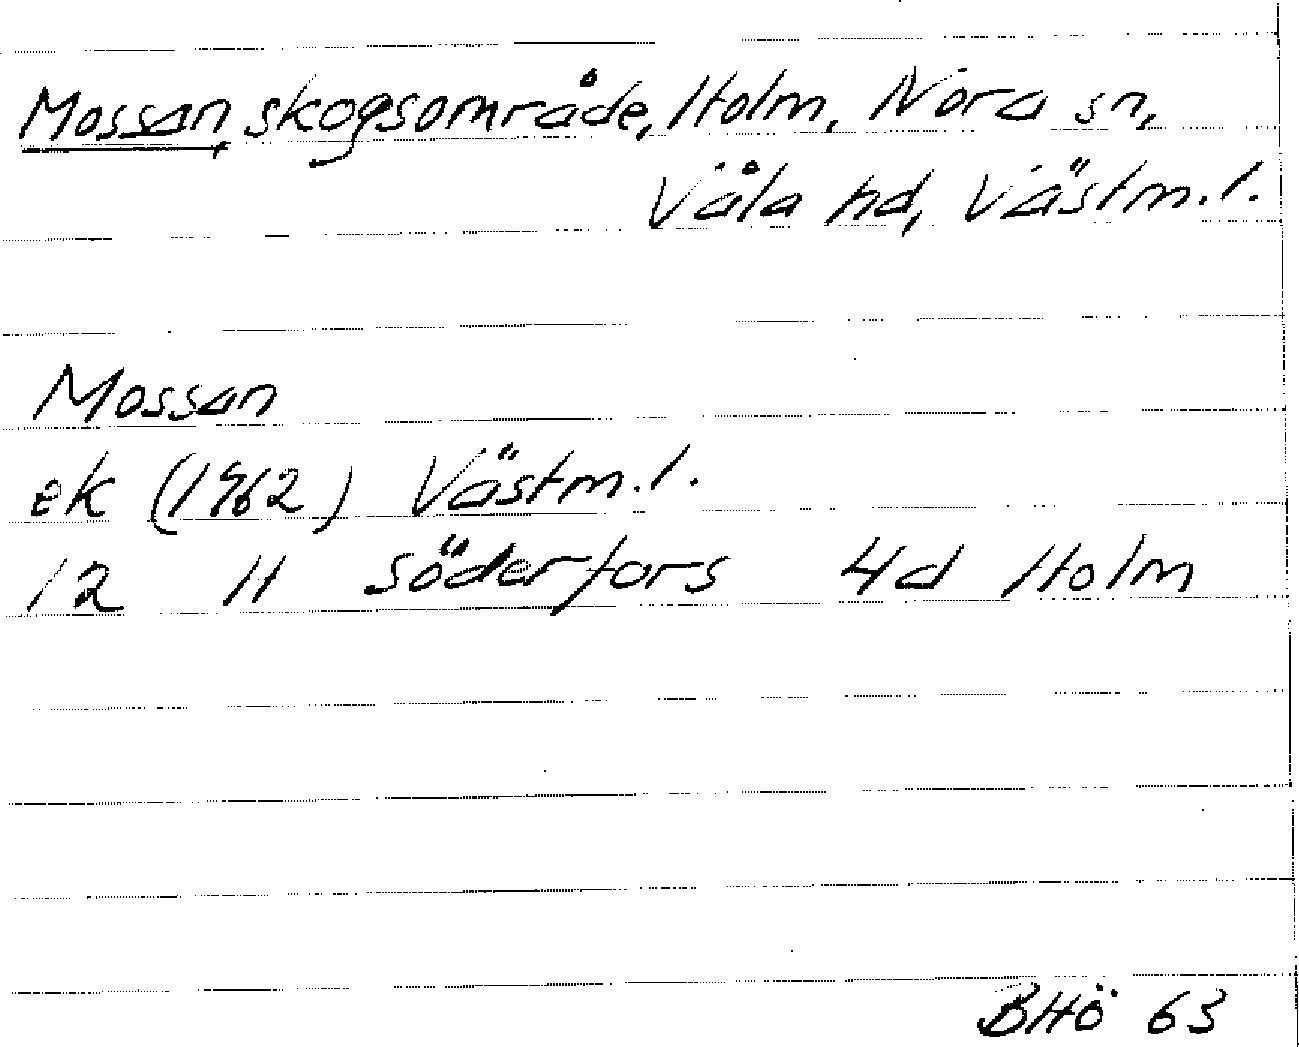 Mossan, skogsområde, Holm, Nora sn,
Våla hd, Västm. l.
Mossan
ek (1962) Västm. l.
12 H Söderfors 4d Holm
BHÖ 63